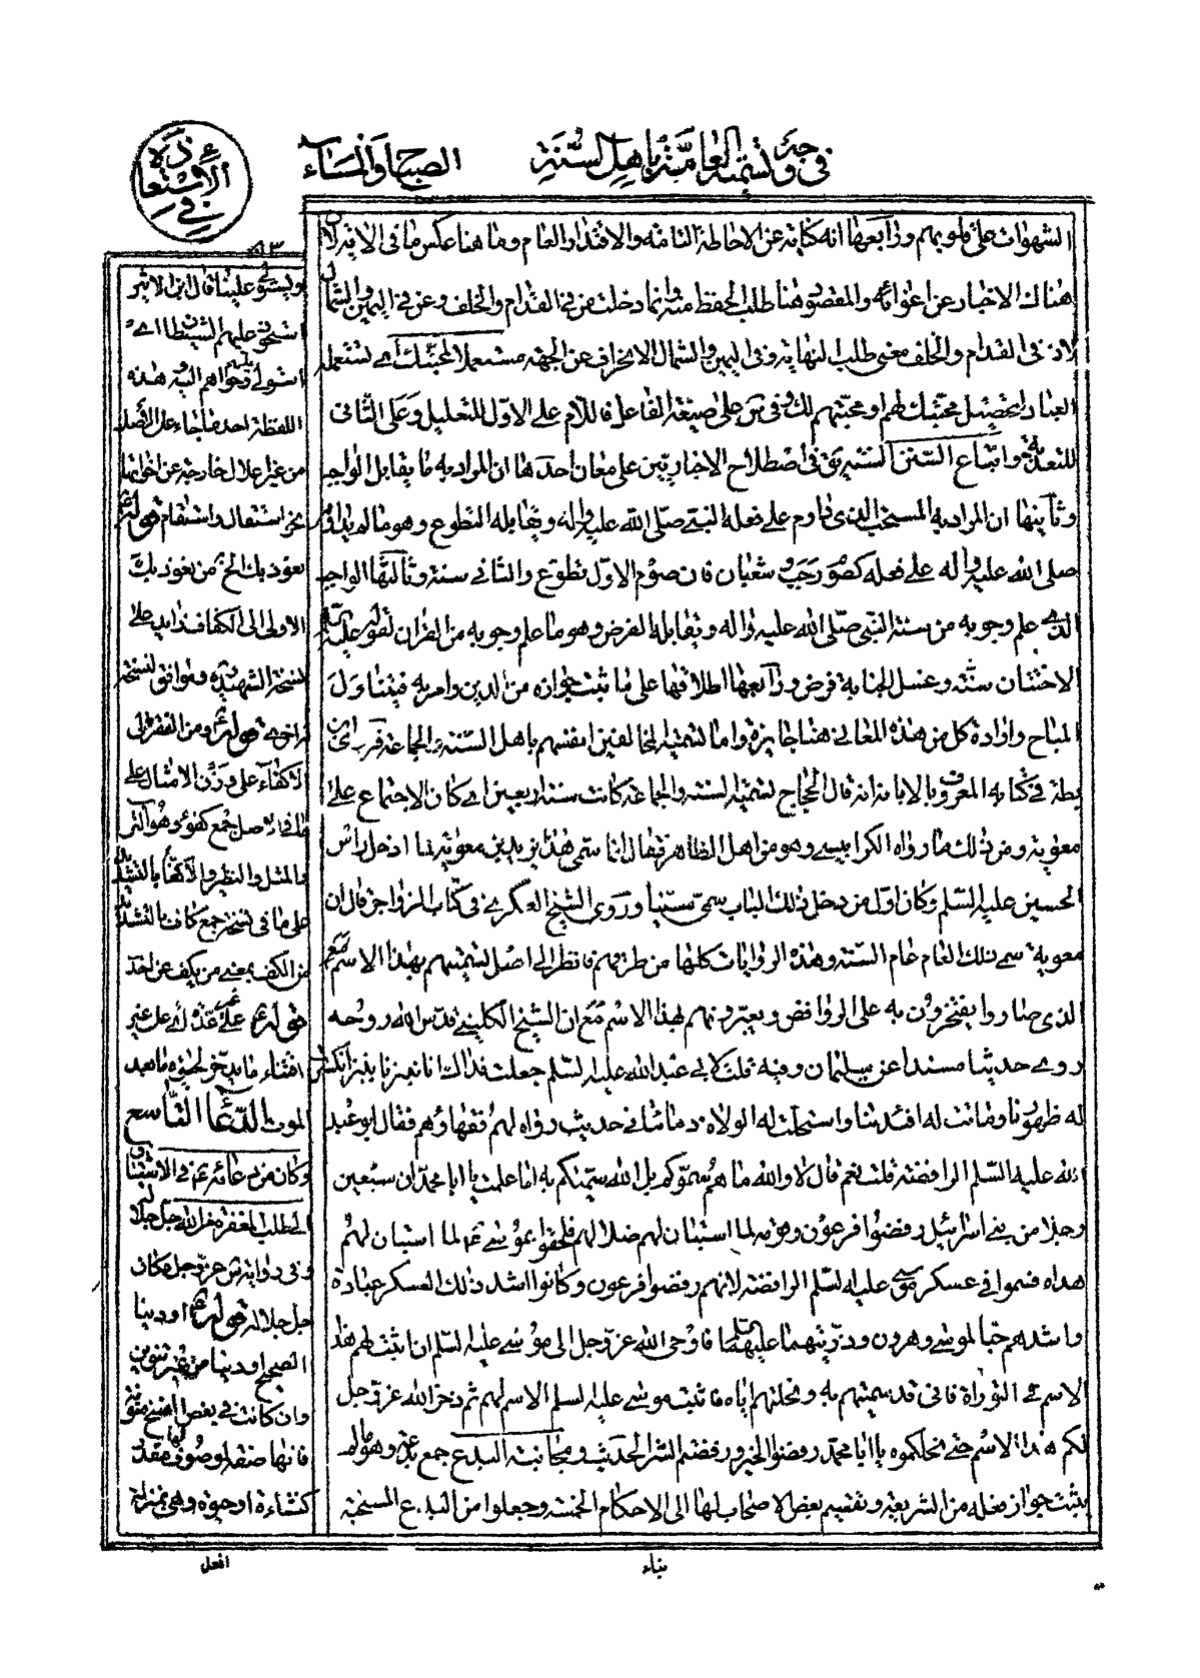 في وجه تسمية العامة باهل السنة
الصباح والمساء
دعاء في الاستعاذة
٨٣
الشهوات على قلوبهم ورابعها انه كناية عن الاحاطة التامة والاقتدار العام وما هنا عكس ما في الاية لان
هناك الاخبار عن اغوائه والمقصود هنا طلب الحفظ منه وانما دخلت من في القدام والخلف وعن في اليمين والشمال
لان في القدام والخلف معنى طلب النهاية وفي اليمين والشمال الانحراف عن الجهة مستعملا لمحبتك اي تستعمله
العباد لتحصيل محبتك لهم او محبتهم لك وفي س على صيغة الفاعل فاللام على الاول للتعليل وعلى الثاني
للتعدية واتباع السنن السنة في اصطلاح الاخباريين على معان احدها ان المراد به ما يقابل الواجب
وثانيها ان المراد به المستحب الذي داوم على فعله النبي صلى الله عليه واله ويقابله التطوع وهو ما لم يداوم
صلى الله عليه واله على فعله كصوم رجب وشعبان فان صوم الاول تطوع والثاني سنة وثالثها الواجب
الذي علم وجوبه من سنة النبي صلى الله عليه واله ويقابله الفرض وهو ما علم وجوبه من القران لقوله عليه السلام
الاختتان سنة وغسل الجنابة فرض ورابعها اطلاقها على ما ثبت جوازه من الدين وامر به فيتناول
المباح وارادة كل من هذه المعاني هنا جايزة واما تسمية المخالفين انفسهم باهل السنة والجماعة فروى ابن
بطة في كتابه المعروف بالابانة انه قال الحجاج لتسمية السنة والجماعة كانت سنة اربعين اي كان الاجتماع على
معوية ومن ذلك ما رواه الكرابيسي وهو من اهل الظاهر فقال انما سمى هذا يزيد بن معوية لما ادخل راس
الحسين عليه السلم وكان اول من دخل ذلك الباب سمى سنيا وروى الشيخ العسكري في كتاب الزواجر قال ان
معوية سمى ذلك العام عام السنة وهذه الروايات كلها من طرقهم فانظر الى اصل تسميتهم بهذا الاسم
الذي صاروا يفتخرون به على الروافض ويعيرونهم لهذا الاسم مع ان الشيخ الكليني قدس الله روحه
روى حديثا مسندا عن سليمان وفيه قلت لابي عبد الله عليه السلم جعلت فداك انا نبزنا نبزا انكسرت
له ظهورنا وماتت له افئدتنا واستحلت له الولاة دمائنا في حديث رواه لهم فقهاؤهم فقال ابو عبد
الله عليه السلم الرافضة قلت نعم قال لا والله ما هم سموكم بل الله سماكم به اما علمت يا ابا محمد ان سبعين
رجلا من بني اسرائيل رفضوا فرعون وقومه لما استبان لهم ضلالهم فلحقوا بموسى ع لما استبان لهم
هداه فسموا في عسكر موسى عليه السلم الرافضة لانهم رفضوا فرعون وكانوا اشد ذلك العسكر عبادة
واشدهم حبا لموسى وهرون وذريتهما عليهما السلم فاوحى الله عز وجل الى موسى عليه السلم ان اثبت لهم هذا
الاسم في التوراة فاني قد سميتهم به ونحلتهم اياه فاثبت موسى عليه السلم الاسم لهم ثم ذخر الله عز وجل
لكم هذا الاسم حتى نحلكموه يا ابا محمد رفضوا الخير ورفضتم الشر الحديث ومجانبة البدع جمع بدعة وهو ما لم
يثبت جواز فعله من الشريعة وتقسيم بعض الاصحاب لها الى الاحكام الخمسة وجعلوا من البدع المستحبة
بناء
ويستحوذ علينا قال ابن الاثير
استحوذ عليهم الشيطان اي
استولى عليهم وحواهم اليه وهذه
اللفظة احد ما جاء على الاصل
من غير اعلال خارجة عن اخواتها
نحو استقال واستقام قوله ع
نعوذ بك الخ من نعوذ بك
الاولى الى الكفاف ذايب على
نسخة الشهيد ره وموافق لنسخة
اخرى قوله ع ومن الفقر الى
الاكفاء على وزن الامثال على
ما في الاصل جمع كفو وهو
المثل والنظير والاكفاء بالتشديد
على ما في نسخة جمع كاف بالتشديد
من الكف بمعنى من يكف عن احد
قوله ع على غير عدة اي على غير
اقتناء ما يدخر لحيوة ما بعد
الموت الدعاء التاسع
وكان من دعائه ع في الاشتياق
الى طلب المغفرة من الله جل جلاله
وفي رواية س عز وجل مكان
جل جلاله قوله ع او دينا
الصحيح او دينا من غير تنوين
وان كانت في بعض النسخ منونة
فانها صفة لموصوف مقدر
كنشاءة او حيوة وهي بمنزلة
افعل